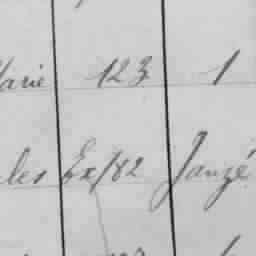 Marie 123 1
les Ex/82 Janzé